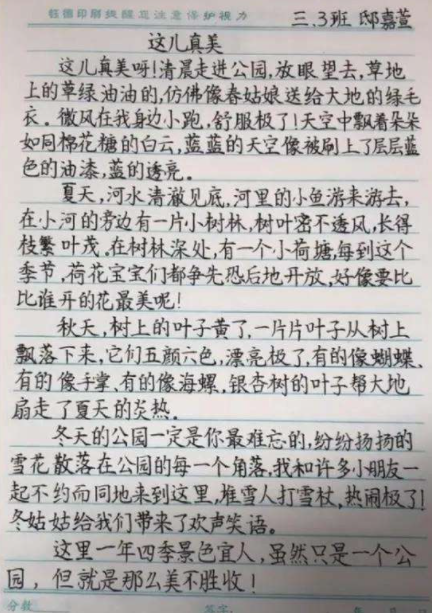 钰德印刷提醒您注意保护视力
三.3班 邸嘉萱
这儿真美
这儿真美呀!清晨走进公园,放眼望去,草地
上的草绿油油的,仿佛像春姑娘送给大地的绿毛
衣。微风在我身边小跑,舒服极了!天空中飘着朵朵
如同棉花糖的白云,蓝蓝的天空像被刷上了层层蓝
色的油漆,蓝的透亮。
夏天,河水清澈见底,河里的小鱼游来游去,
在小河的旁边有一片小树林,树叶密不透风,长得
枝繁叶茂。在树林深处,有一个小荷塘,每到这个
季节,荷花宝宝们都争先恐后地开放,好像要比
比谁开的花最美呢!
秋天,树上的叶子黄了,一片片叶子从树上
飘落下来,它们五颜六色,漂亮极了,有的像蝴蝶,
有的像手掌,有的像海螺,银杏树的叶子帮大地
扇走了夏天的炎热。
冬天的公园一定是你最难忘的,纷纷扬扬的
雪花散落在公园的每一个角落,我和许多小朋友一
起不约而同地来到这里,堆雪人打雪杖,热闹极了!
冬姑姑给我们带来了欢声笑语。
这里一年四季景色宜人,虽然只是一个公
园,但就是那么美不胜收!
分数